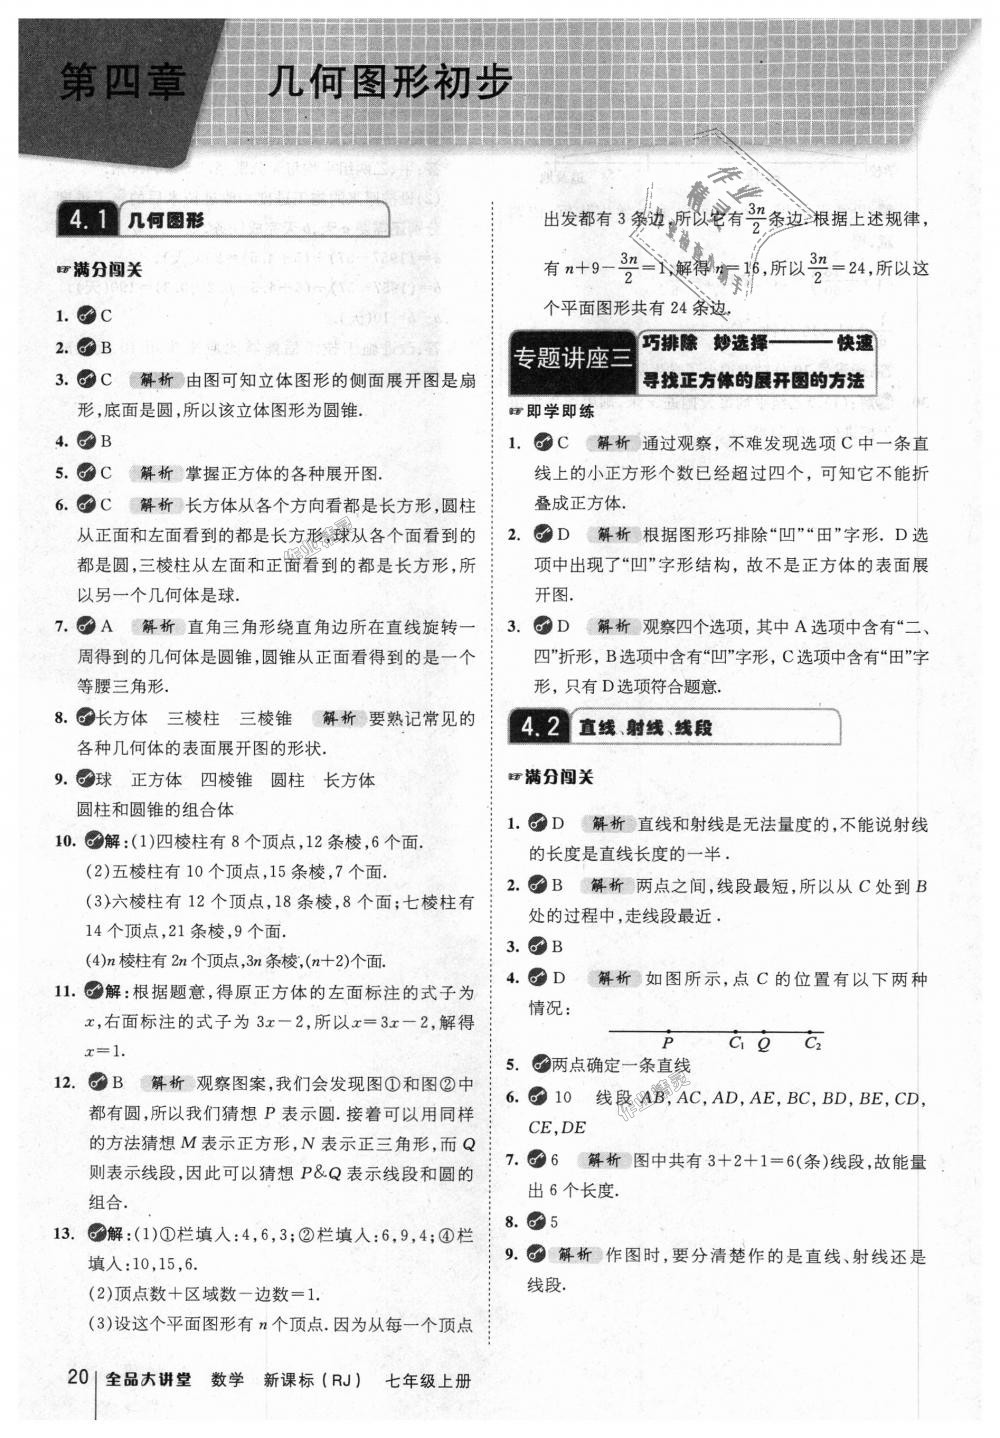 第四章 几何图形初步
4.1 几何图形
☞满分闯关
1. C
2. B
3. C 解析 由图可知立体图形的侧面展开图是扇
形,底面是圆,所以该立体图形为圆锥.
4. B
5. C 解析 掌握正方体的各种展开图.
6. C 解析 长方体从各个方向看都是长方形,圆柱
从正面和左面看到的都是长方形,球从各个面看到的
都是圆,三棱柱从左面和正面看到的都是长方形,所
以另一个几何体是球.
7. A 解析 直角三角形绕直角边所在直线旋转一
周得到的几何体是圆锥,圆锥从正面看得到的是一个
等腰三角形.
8. 长方体 三棱柱 三棱锥 解析 要熟记常见的
各种几何体的表面展开图的形状.
9. 球 正方体 四棱锥 圆柱 长方体
圆柱和圆锥的组合体
10. 解:(1)四棱柱有 8 个顶点,12 条棱,6 个面.
(2)五棱柱有 10 个顶点,15 条棱,7 个面.
(3)六棱柱有 12 个顶点,18 条棱,8 个面;七棱柱有
14 个顶点,21 条棱,9 个面.
(4)n 棱柱有 2n 个顶点,3n 条棱,(n+2)个面.
11. 解:根据题意,得原正方体的左面标注的式子为
x,右面标注的式子为 3x-2,所以 x=3x-2,解得
x=1.
12. B 解析 观察图案,我们会发现图①和图②中
都有圆,所以我们猜想 P 表示圆.接着可以用同样
的方法猜想 M 表示正方形,N 表示正三角形,而 Q
则表示线段,因此可以猜想 P&Q 表示线段和圆的
组合.
13. 解:(1)①栏填入:4,6,3;②栏填入:6,9,4;④栏
填入:10,15,6.
(2)顶点数+区域数-边数=1.
(3)设这个平面图形有 n 个顶点.因为从每一个顶点
出发都有 3 条边,所以它有 3n/2 条边.根据上述规律,
有 n+9-3n/2=1,解得 n=16,所以 3n/2=24,所以这
个平面图形共有 24 条边.
专题讲座三 巧排除 妙选择———快速
寻找正方体的展开图的方法
☞即学即练
1. C 解析 通过观察, 不难发现选项 C 中一条直
线上的小正方形个数已经超过四个, 可知它不能折
叠成正方体.
2. D 解析 根据图形巧排除“凹”“田”字形. D 选
项中出现了“凹”字形结构, 故不是正方体的表面展
开图.
3. D 解析 观察四个选项, 其中 A 选项中含有“二、
四”折形, B 选项中含有“凹”字形, C 选项中含有“田”字
形, 只有 D 选项符合题意.
4.2 直线、射线、线段
☞满分闯关
1. D 解析 直线和射线是无法量度的,不能说射线
的长度是直线长度的一半.
2. B 解析 两点之间,线段最短,所以从 C 处到 B
处的过程中,走线段最近.
3. B
4. D 解析 如图所示,点 C 的位置有以下两种
情况:
P C₁ Q C₂
5. 两点确定一条直线
6. 10 线段 AB,AC,AD,AE,BC,BD,BE,CD,
CE,DE
7. 6 解析 图中共有 3+2+1=6(条)线段,故能量
出 6 个长度.
8. 5
9. 解析 作图时,要分清楚作的是直线、射线还是
线段.
20 全品大讲堂 数学 新课标(RJ) 七年级上册
作业精灵
作业精灵
作业精灵